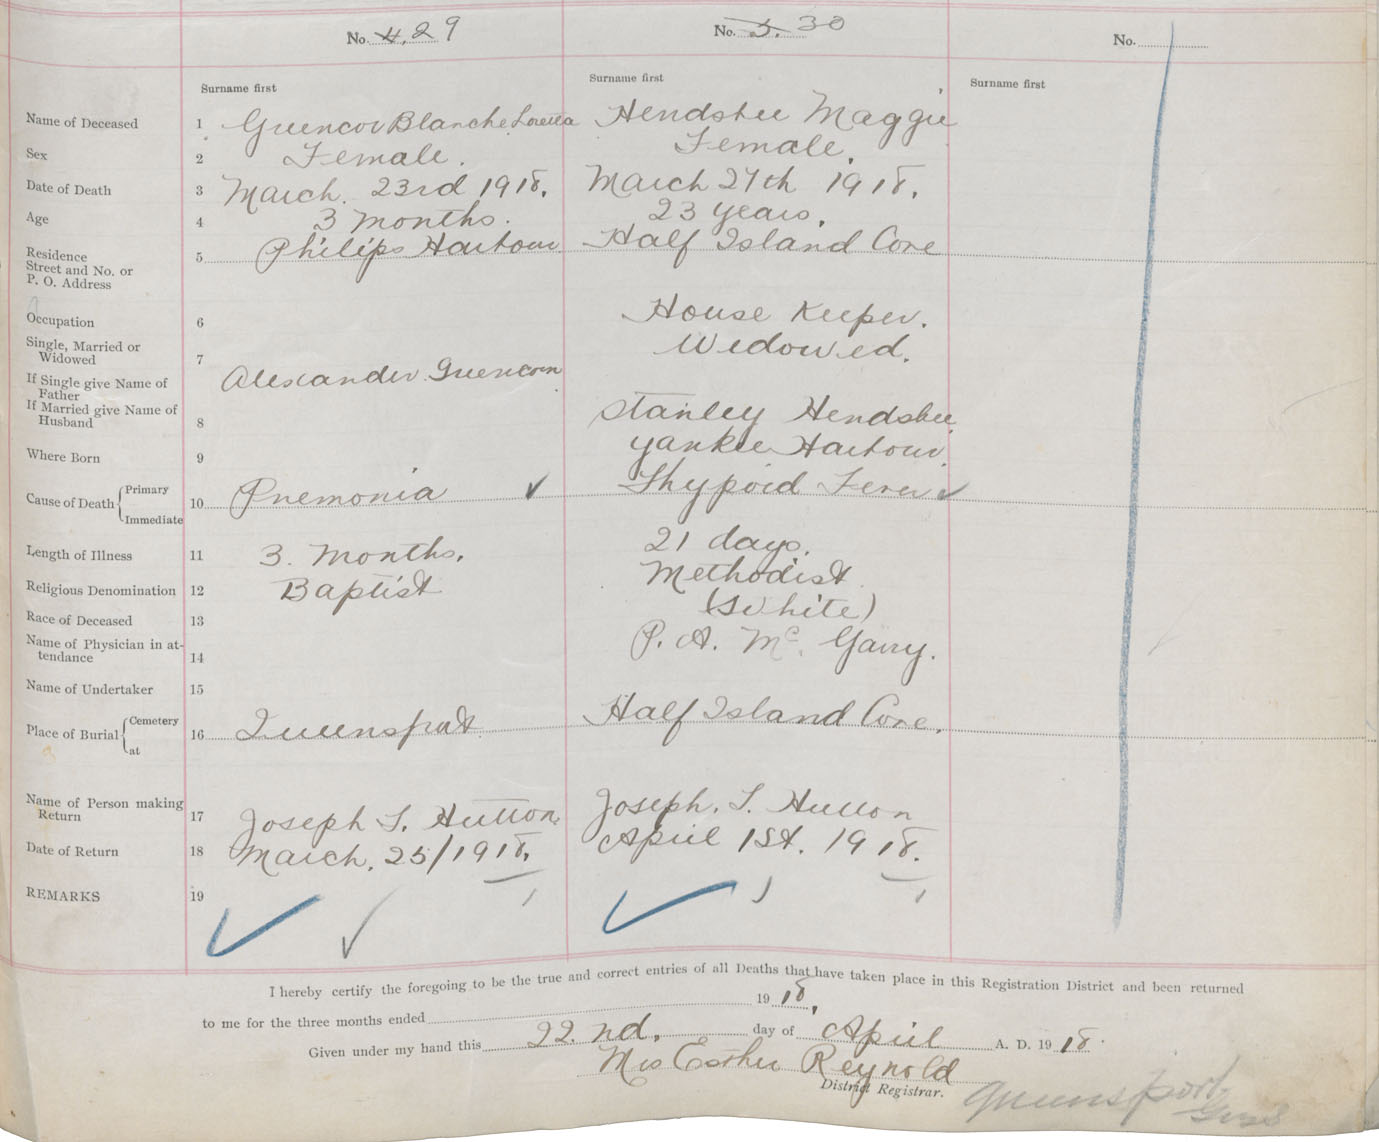 No. 4. 29
No. 5. 30
No.
Surname first
Surname first
Surname first
Name of Deceased 1 Blanche Loretta Hendsbee Maggie
Sex 2 Female. Female.
Date of Death 3 March. 23rd 1918. March 27th 1918.
Age 4 3 months. 23 years.
Residence
Street and No. or
P. O. Address 5 Philips Harbour Half Island Cove
Occupation 6 House Keeper.
Single, Married or
Widowed 7 Widowed.
If Single give Name of
Father Alexander
If Married give Name of
Husband 8 Stanley Hendsbee
Where Born 9 Yankee Harbour.
Cause of Death { Primary
Immediate 10 Pnemonia ✓ Thypoid Fever ✓
Length of Illness 11 3. Months. 21 days.
Religious Denomination 12 Baptist Methodist
Race of Deceased 13 (White)
Name of Physician in at-
tendance 14 P. A. Mc. Garry.
Name of Undertaker 15
Place of Burial { Cemetery
at 16 Queensport Half Island Cove.
Name of Person making
Return 17 Joseph S. Hutton. Joseph. S. Hutton
Date of Return 18 March. 25/1918. April 1st. 1918.
REMARKS 19 ✓ ✓ ✓
I hereby certify the foregoing to be the true and correct entries of all Deaths that have taken place in this Registration District and been returned
to me for the three months ended 1918.
Given under my hand this 22nd. day of April A. D. 1918.
Mrs Esther Reynold
District Registrar.
Queensport
Guys